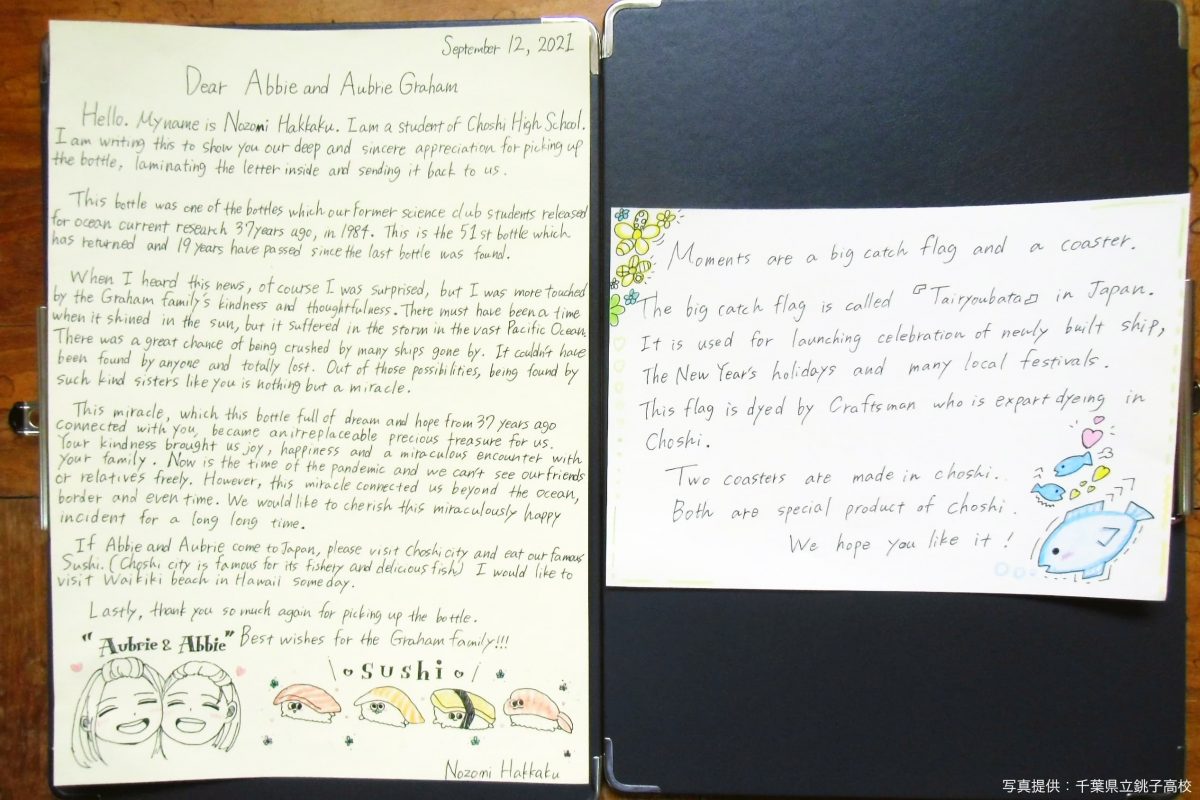 September 12, 2021
Dear Abbie and Aubrie Graham
Hello. My name is Nozomi Hakkaku. I am a student of Choshi High School.
I am writing this to show you our deep and sincere appreciation for picking up
the bottle, laminating the letter inside and sending it back to us.
This bottle was one of the bottles which our former science club students released
for ocean current research 37 years ago, in 1984. This is the 51st bottle which
has returned and 19 years have passed since the last bottle was found.
When I heard this news, of course I was surprised, but I was more touched
by the Graham family's kindness and thoughtfulness. There must have been a time
when it shined in the sun, but it suffered in the storm in the vast Pacific Ocean.
There was a great chance of being crushed by many ships gone by. It couldn't have
been found by anyone and totally lost. Out of those possibilities, being found by
such kind sisters like you is nothing but a miracle.
This miracle, which this bottle full of dream and hope from 37 years ago
connected with you, became an irreplaceable precious treasure for us.
Your kindness brought us joy, happiness and a miraculous encounter with
your family. Now is the time of the pandemic and we can't see our friends
or relatives freely. However, this miracle connected us beyond the ocean,
border and even time. We would like to cherish this miraculously happy
incident for a long long time.
If Abbie and Aubrie come to Japan, please visit Choshi city and eat our famous
Sushi. (Choshi city is famous for its fishery and delicious fish) I would like to
visit Waikiki beach in Hawaii some day.
Lastly, thank you so much again for picking up the bottle.
"Aubrie & Abbie" Best wishes for the Graham family!!!
sushi
Nozomi Hakkaku
Moments are a big catch flag and a coaster.
The big catch flag is called 『Tairyoubata』 in Japan.
It is used for launching celebration of newly built ship,
The New Year's holidays and many local festivals.
This flag is dyed by Craftsman who is expart dyeing in
Choshi.
Two coasters are made in choshi.
Both are special product of choshi.
We hope you like it!
写真提供：千葉県立銚子高校